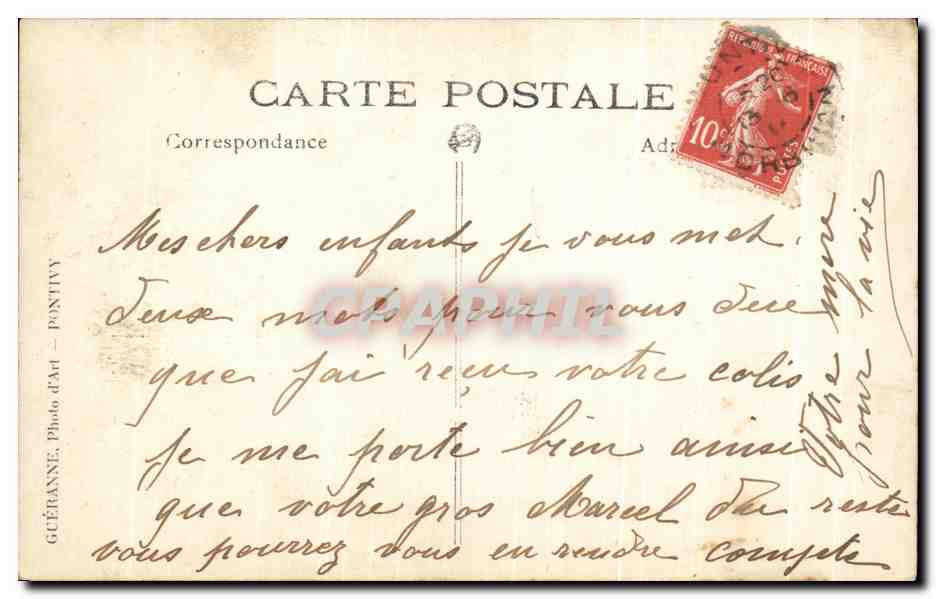 CARTE POSTALE
Correspondance
REPUBLIQUE FRANÇAISE
10c
POSTES
Mes chers enfants je vous met
deux mots pour vous dire
que j'ai reçu votre colis
je me porte bien ainsi
que votre gros Marcel du reste
vous pourrez vous en rendre compte
Votre mère
pour la vie
GUÉRANNE, Photo d'Art — PONTIVY
CPAPHIL